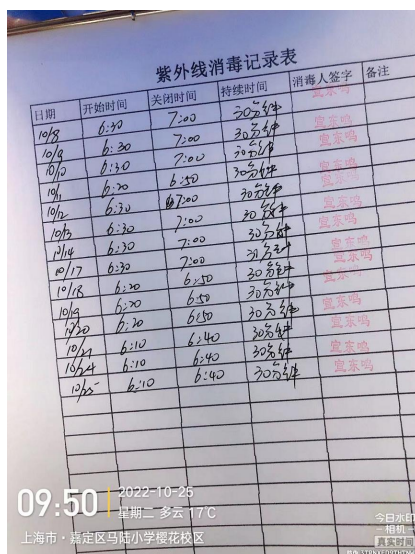 紫外线消毒记录表
日期 开始时间 关闭时间 持续时间 消毒人签字 备注
10/8 6:30 7:00 30分钟 宜东鸣
10/9 6:30 7:00 30分钟 宜东鸣
10/10 6:30 7:00 30分钟 宜东鸣
10/11 6:20 6:50 30分钟 宜东鸣
10/12 6:30 7:00 30分钟 宜东鸣
10/13 6:30 7:00 30分钟 宜东鸣
10/14 6:30 7:00 30分钟 宜东鸣
10/17 6:30 7:00 30分钟 宜东鸣
10/18 6:20 6:50 30分钟 宜东鸣
10/19 6:20 6:50 30分钟 宜东鸣
10/20 6:20 6:50 30分钟 宜东鸣
10/21 6:10 6:40 30分钟 宜东鸣
10/24 6:10 6:40 30分钟 宜东鸣
10/25 6:10 6:40 30分钟 宜东鸣
09:50
2022-10-25
星期二 多云 17℃
上海市·嘉定区马陆小学樱花校区
今日水印
相机
真实时间